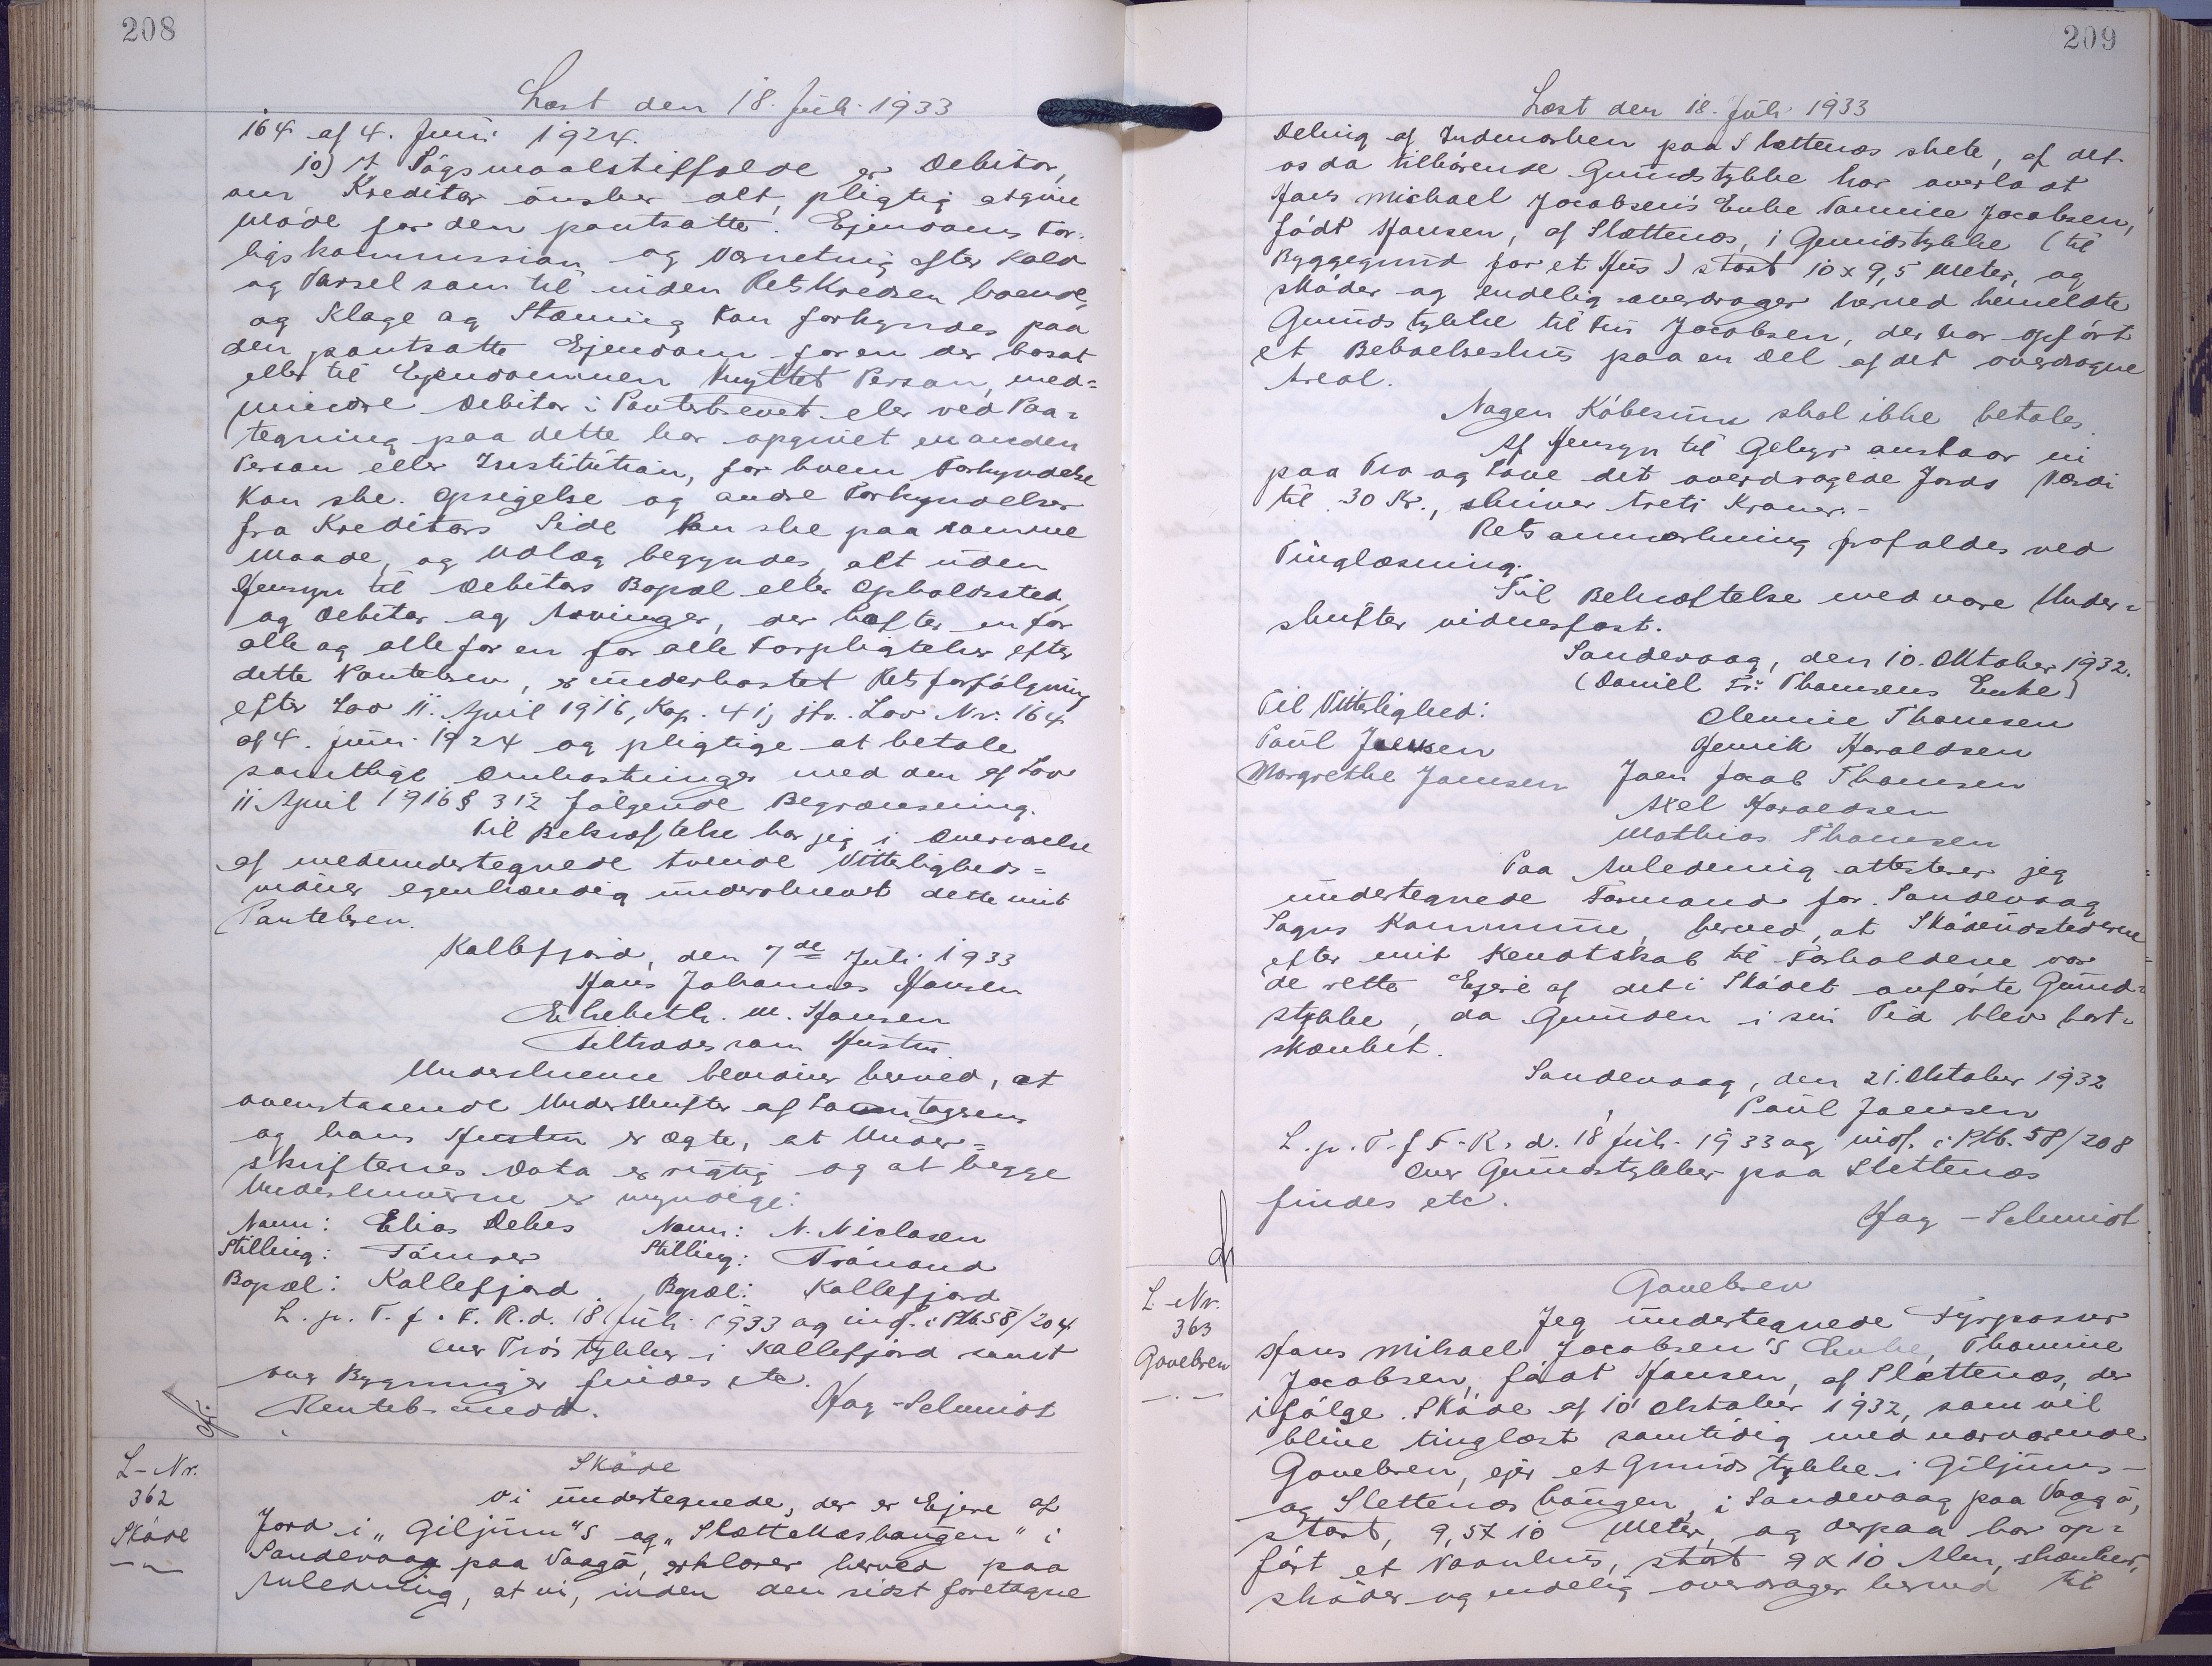 208
Læst den 18. Juli 1933
164 af 4. Juni 1924.
10) I Søgsmaalstilfælde er Debitor,
om Kreditor ønsker det, pligtig at give
Møde for den pantsatte Ejendoms For-
ligskommission og Værneting efter Kald
og Varsel som til inden Retskredsen boende,
og Klage og Stævning kan forkyndes paa
den pantsatte Ejendom for en der bosat
eller til Ejendommen knyttet Person, med=
mindre Debitor i Pantebrevet eller ved Paa=
tegning paa dette har opgivet en anden
Person eller Institution, for hvem Forkyndelse
kan ske. Opsigelse og andre Forkyndelser
fra Kreditors Side kan ske paa samme
Maade, og Udlæg begyndes, alt uden
Hensyn til Debitors Bopæl eller Opholdssted,
og Debitor og Arvinger, der hæfter en for
alle og alle for en for alle Forpligtelser efter
dette Pantebrev, er underkastet Retsforfølgning
efter Lov 11. April 1916, Kap. 41, jfr. Lov Nr. 164
af 4. Juni 1924 og pligtige at betale
samtlige Omkostninger med den af Lov
11 April 1916 § 312 følgende Begrænsning.
Til Bekræftelse har jeg i Overværelse
af medundertegnede tvende Vitterligheds=
vidner egenhændig underskrevet dette mit
Pantebrev.
Kollefjord, den 7de Juli 1933
Hans Johannes Hansen
Elsebeth. M. Hansen
Tiltrædes som Hustru.
Underskrevne bevidner herved, at
ovenstaaende Underskrifter af Laantageren
og hans Hustru er ægte, at Under=
skrifternes Data er rigtig og at begge
Underskriverne er myndige:
Navn: Elias Debes Navn: N. Niclasen
Stilling: Tømrer Stilling: Trømand
Bopæl: Kollefjord Bopæl: Kollefjord
L. p. T. f. F. R. d. 18 Juli 1933 og indf. i Ptb. 58/204
Over Trøstykker i Kollefjord samt
over Bygninger findes etc.
Panteb. medd. Hag-Schmidt
L-Nr.
362
Skøde
Skøde
Vi undertegnede, der er Ejere af
Jord i "Giljum"s og "Slættenæshaugen" i
Sandevaag paa Vaagø, erklærer herved paa
Anledning, at vi, inden den sidst foretagne
209
Læst den 18. Juli 1933
Deling af Indmarken paa Slættenæs skete, af det
os da tilhørende Grundstykke har overladt
Hans Michael Jacobsen's Enke Tomine Jacobsen,
født Hansen, af Slættenæs, 1 Grundstykke (til
Byggegrund for et Hus) stort 10 x 9,5 Meter, og
skøder og endelig overdrager herved bemeldte
Grundstykke til Fru Jacobsen, der har opført
et Beboelseshus paa en Del af det overdragne
Areal.
Nogen Købesum skal ikke betales.
Af Hensyn til Gebyr anslaar vi
paa Tro og Love det overdragede Jords Værdi
til 30 Kr., skriver treti Kroner.-
Retsanmærkning frafaldes ved
Tinglæsning.
Til Bekræftelse med vore Under=
skrifter vidnesfast.
Sandevaag, den 10. Oktober 1932.
(Daniel Fr. Thomsens Enke)
Til Vitterlighed: Olennie Thomsen
Paul Joensen Henrik Haraldsen
Margrethe Jansen Joen Jacob Thomsen
Axel Haraldsen
Mathias Thomsen
Paa Anledning attesterer jeg
undertegnede Formand for Sandevaag
Sogns Kommune, herved, at Skødeudstederne
efter mit Kendtskab til Forholdene var
de rette Ejere af det i Skødet anførte Grund=
stykke, da Grunden i sin Tid blev bort-
skænket.
Sandevaag, den 21. Oktober 1932
Paul Joensen
L. p. T. f F. R. d. 18 Juli 1933 og indf. i Ptb. 58/208
Over Grundstykker paa Slettenæs
findes etc.
Hag-Schmidt
L-Nr.
363
Gavebrev
Gavebrev
Jeg undertegnede Fyrpasser
Hans Mikael Jacobsen's Enke, Thomine
Jacobsen, født Hansen, af Slettenæs, der
ifølge Skøde af 10 Oktober 1932, som vil
blive tinglæst samtidig med nærværende
Gavebrev, ejer et Grundstykke i Giljums-
og Slettenæs haugen, i Sandevaag paa Vaagø,
stort, 9,5 x 10 Meter, og derpaa har op=
ført et Vaanhus, stort 9 x 10 Alen, skænker,
skøder og endelig overdrager herved til